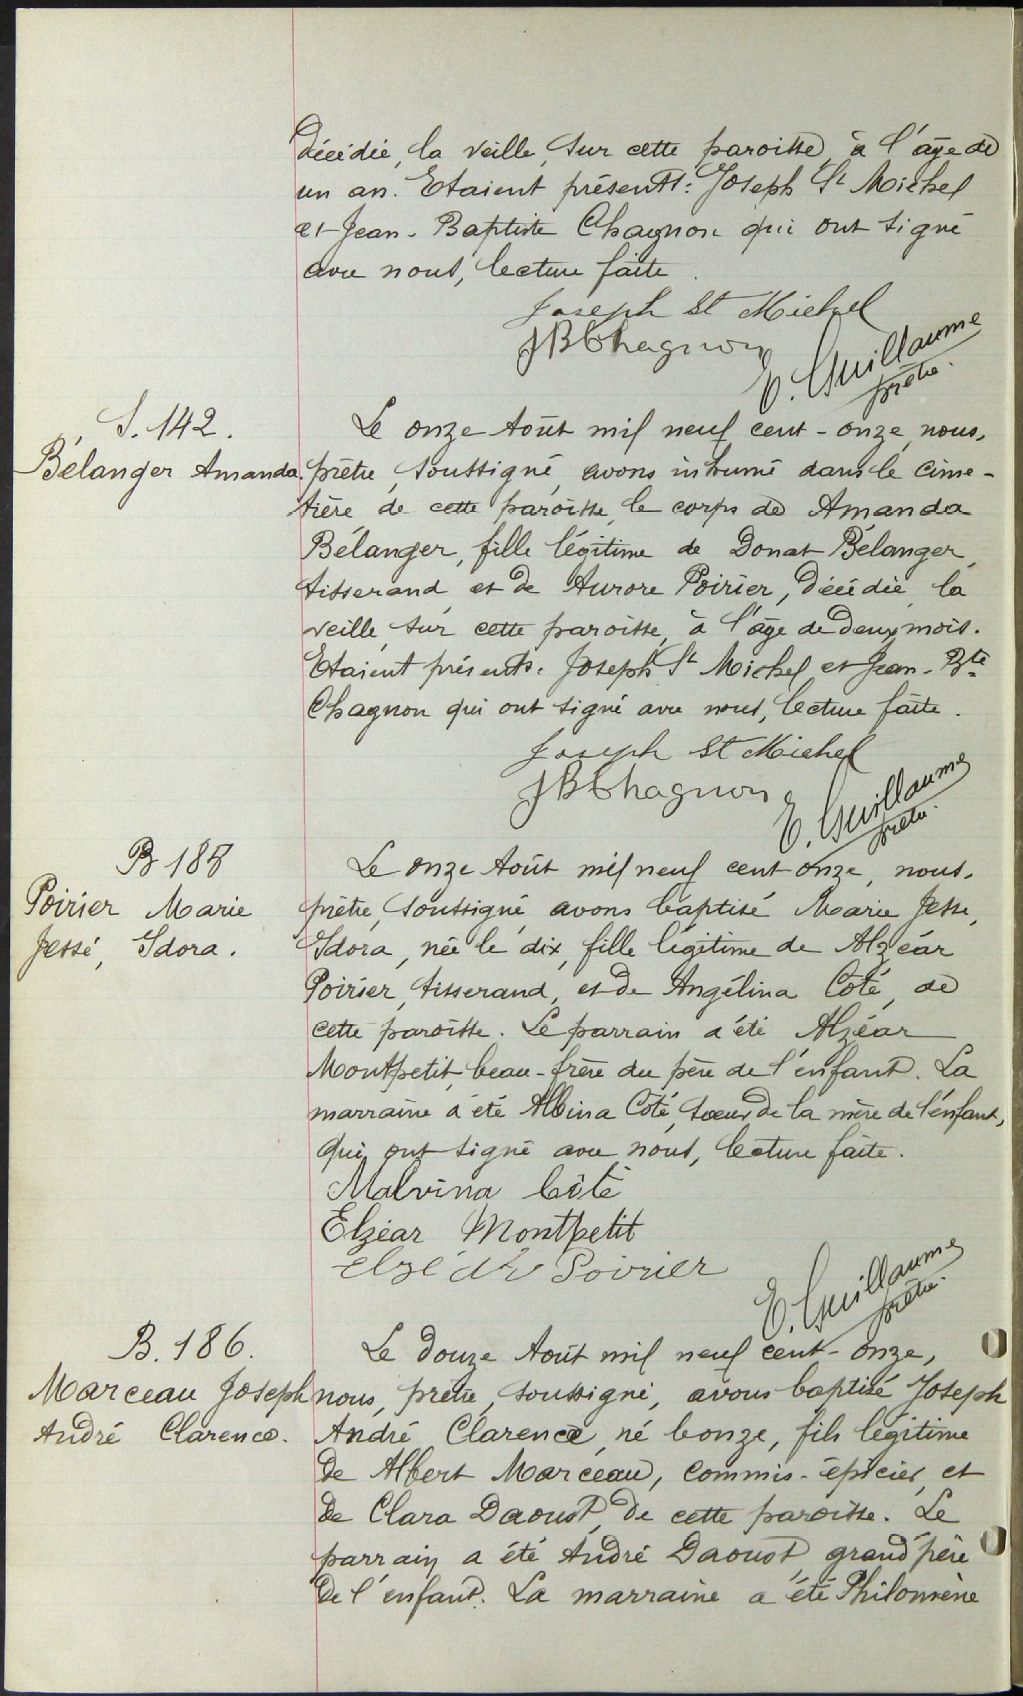 décédée, la veille, sur cette paroisse, à l'âge de
un an. Etaient présents: Joseph St Michel
et Jean-Baptiste Chagnon qui ont signé
avec nous, lecture faite.
Joseph St Michel
JBChagnon
E. Guillaume
prêtre.
S. 142.
Bélanger Amanda.
Le onze Août mil neuf cent-onze, nous,
prêtre, soussigné, avons inhumé dans le cime-
tière de cette paroisse, le corps de Amanda
Bélanger, fille légitime de Donat Bélanger,
tisserand, et de Aurore Poirier, décédée, la
veille, sur cette paroisse, à l'âge de deux mois.
Etaient présents: Joseph St Michel et Jean-Bte
Chagnon qui ont signé avec nous, lecture faite.
Joseph St Michel
JBChagnon
E. Guillaume
prêtre.
B 185
Poirier Marie
Jessé, Idora.
Le onze Août mil neuf cent-onze, nous,
prêtre, soussigné avons baptisé Marie Jesse,
Idora, née le dix, fille légitime de Alzéar
Poirier, tisserand, et de Angélina Côté, de
cette paroisse. Le parrain a été Alzéar
Montpetit, beau-frère du père de l'enfant. La
marraine a été Albina Côté, soeur de la mère de l'enfant,
qui ont signé avec nous, lecture faite.
Malvina Côté
Elzéar Montpetit
Elzéar Poirier
E. Guillaume
prêtre.
B. 186.
Marceau Joseph
André Clarence.
Le douze Août mil neuf cent-onze,
nous, prêtre, soussigné, avons baptisé Joseph
André Clarence, né le onze, fils légitime
de Albert Marceau, commis-épicier, et
de Clara Daoust, de cette paroisse. Le
parrain a été André Daoust, grand'père
de l'enfant. La marraine a été Philomène